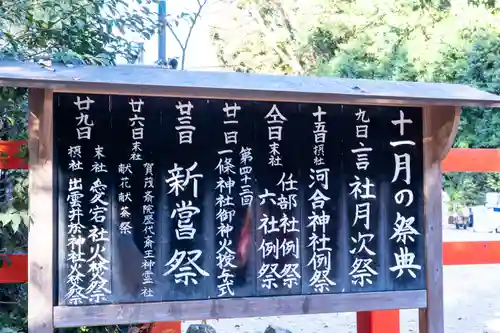 十一月の祭典
九日 二言社月次祭
十五日 摂社 河合神社例祭
仝日 末社 任部社例祭
六社例祭
第四十三回
神社御神火授与式
廿三日 新嘗祭
廿六日 末社 賀茂斎院歴代斎王神霊社
献花献茶祭
廿九日 末社 愛宕社火焚祭
摂社 出雲井於神社火焚祭